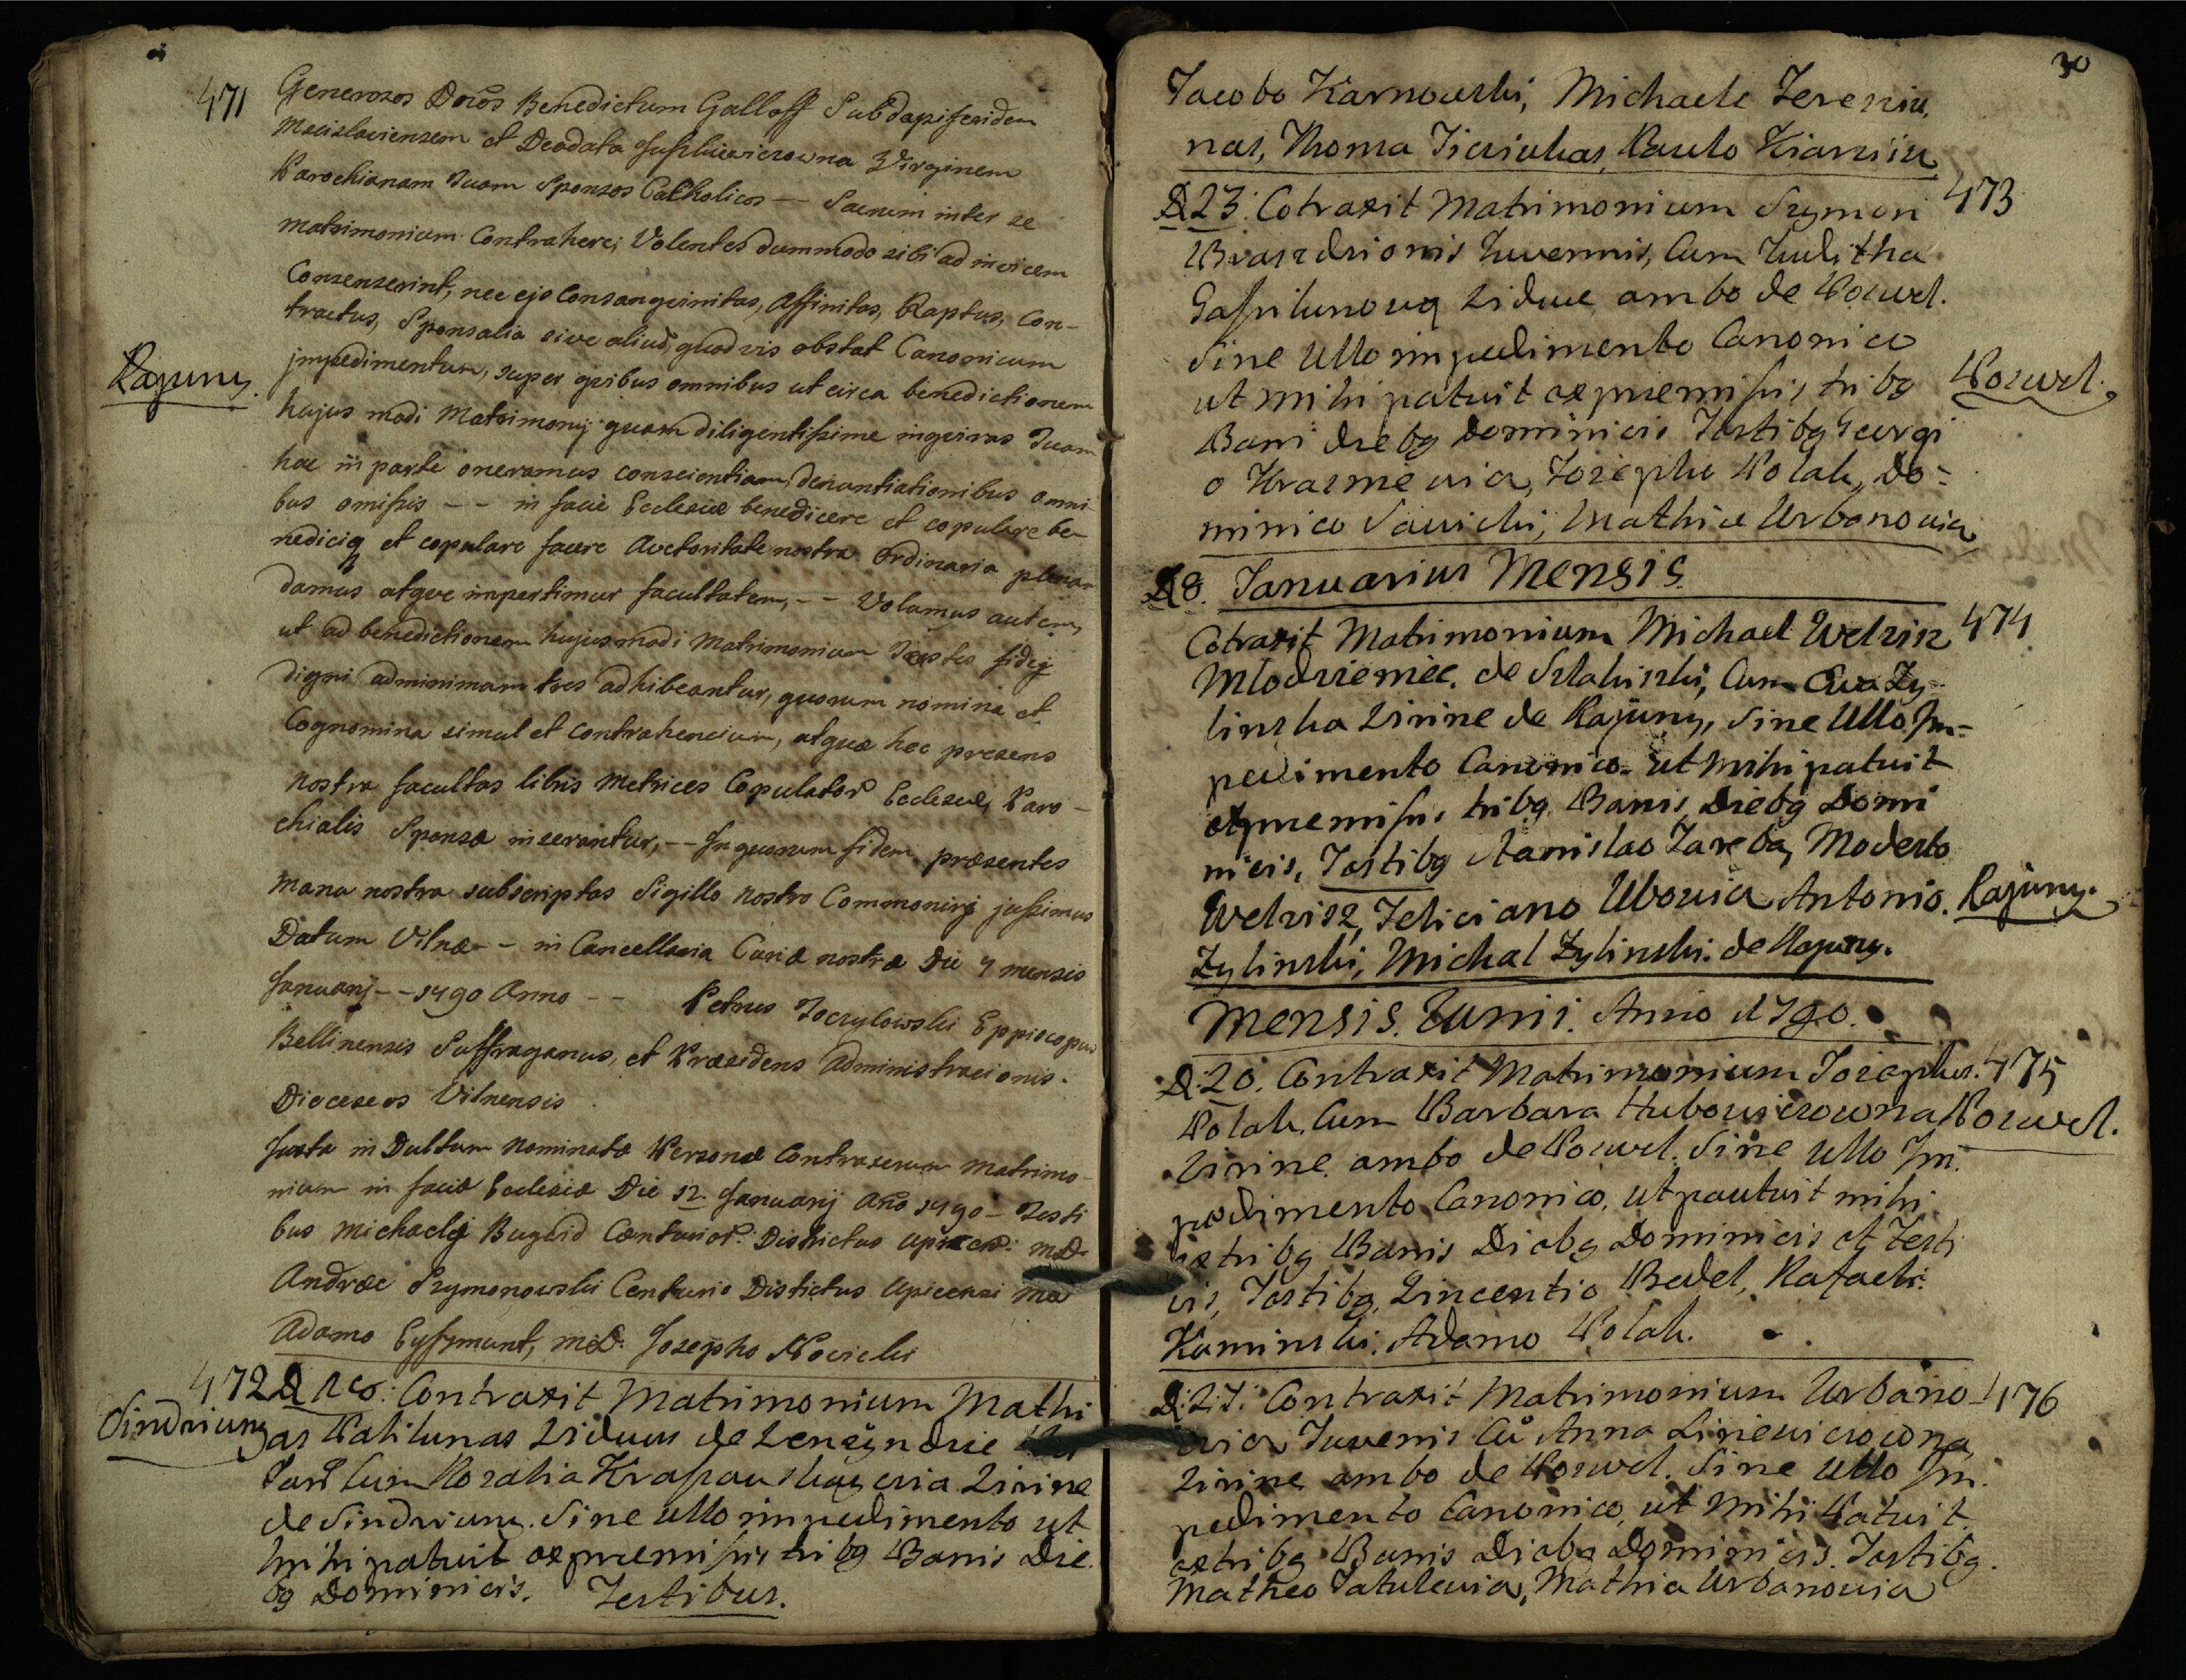 471
Generosos Dnos Benedictum Galloff Subdapiferidem
Mscislaviensem et Deodata Virginem
Parochianam Tuam Sponsos Catholicos — Sacrum inter se
Matrimonium Contrahere, Volentes dummodo sibi ad invicem
Consenserint, nec ejs Consanguinitas, Affinitas, Raptus, Con-
tractus, Sponsalia sive aliud quodvis obstat Canonicum
Rajuny.
jmpedimentum, super quibus omnibus ut circa benedictionem
hujus modi Matrimonij quam diligentissime inquiras Tuam
hac in parte oneramus conscientiam, denuntiationibus omni
bus omissis — — in facie Ecclesiæ benedicere et copulare be-
nediciq et copulare facere Auctoritate nostra Ordinaria plenam
damus atque impertimur facultatem, — — Volumus autem,
ut ad benedictionem hujusmodi Matrimonium Testes fidej
digni adminimum tres adhibeantur, quorum nomina et
Cognomina simul et Contrahencium, atque hec presens
nostra facultas libris Metrices Copulator Ecclesiæ Paro-
chialis Sponsæ inserantur, — — Jn quorum fidem præsentes
Manu nostra subscriptas Sigillo nostro Commoniri jussimus
Datum Vilnæ — — in Cancellaria Curiæ nostræ Die 7 mensis
Januarj — — 1790 Anno — — Petrus Toczylowski Eppiscopus
Bellinensis Suffraganus, et Præsidens Administracionis.
Dioceseos Vilnensis.
Juxta in Dultum Nominatæ Personæ Contraxerunt Matrimo-
nium in facie Ecclesiæ Die 12 Januarij Ano 1790 — Testi
bus Michaele Centurio Districtus MD.
Andræe Szymonowski Centurio Districtus
Adamo Eysymunt, MD. Josepho Nowicki
472 D Contraxit Matrimonium Mathi
Sindriuny as Viduus de
Cum Rozalia Virine
de Sindriuny. Sine ullo impedimento ut
mihi patuit ex premissis tribg Banis Die
bg Dominicis. Testibus.
30
Jacobo Karnowski, Michaele
nas, Thoma Paulo
D 23. Cotraxit Matrimonium Szymon 473
Juvennis, Cum Juditha
Vidue ambo de Poszwel.
Sine Ullo impedimento Canonico
ut mihi patuit ex premissis tribg Poszwel.
Bani diebg dominicis Testibg Georgi
o Josepho Polak, Do-
minico Sawicki, Mathia Urbanowicz
D 8. Januarius Mensis
Cotraxit Matrimonium Michael Welzis 474
Mlodzieniec. de Cum Ewa Zy-
linska Virine de Rajuny, Sine Ullo Jm-
pedimento Canonico. ut mihi patuit
ex premissis tribg Banis Diebg Domi
nicis, Testibg Stanislao Zareba, Modesto
Welzisz, Feliciano Ubowicz Antonio. Rajuny.
Zylinski, Michal Zylinski. de Rajuny.
Mensis. Junii. Anno 1790.
D: 20. Contraxit Matrimonium Josephus. 475
Polak. Cum Barbara Hubowiczowna Poszwel.
Virine ambo de Poszwel. Sine Ullo Jm.
pedimento Canonico, ut pautuit mihi
extribg Banis Diebg Dominicis et Festi
vis, Testibg, Vincentio Bedel, Rafaele.
Kaminski, Adamo Polak.
D: 27. Contraxit Matrimonium Urbano- 476
wicz Juvenis Cu Anna Liniewiczowna,
Virine ambo de Poszwel. Sine Ullo Jm.
pedimento Canonico, ut Mihi Patuit
extribg Banis Diebg Dominicis. Testibg.
Matheo Tatulewicz, Mathia Urbanowicz